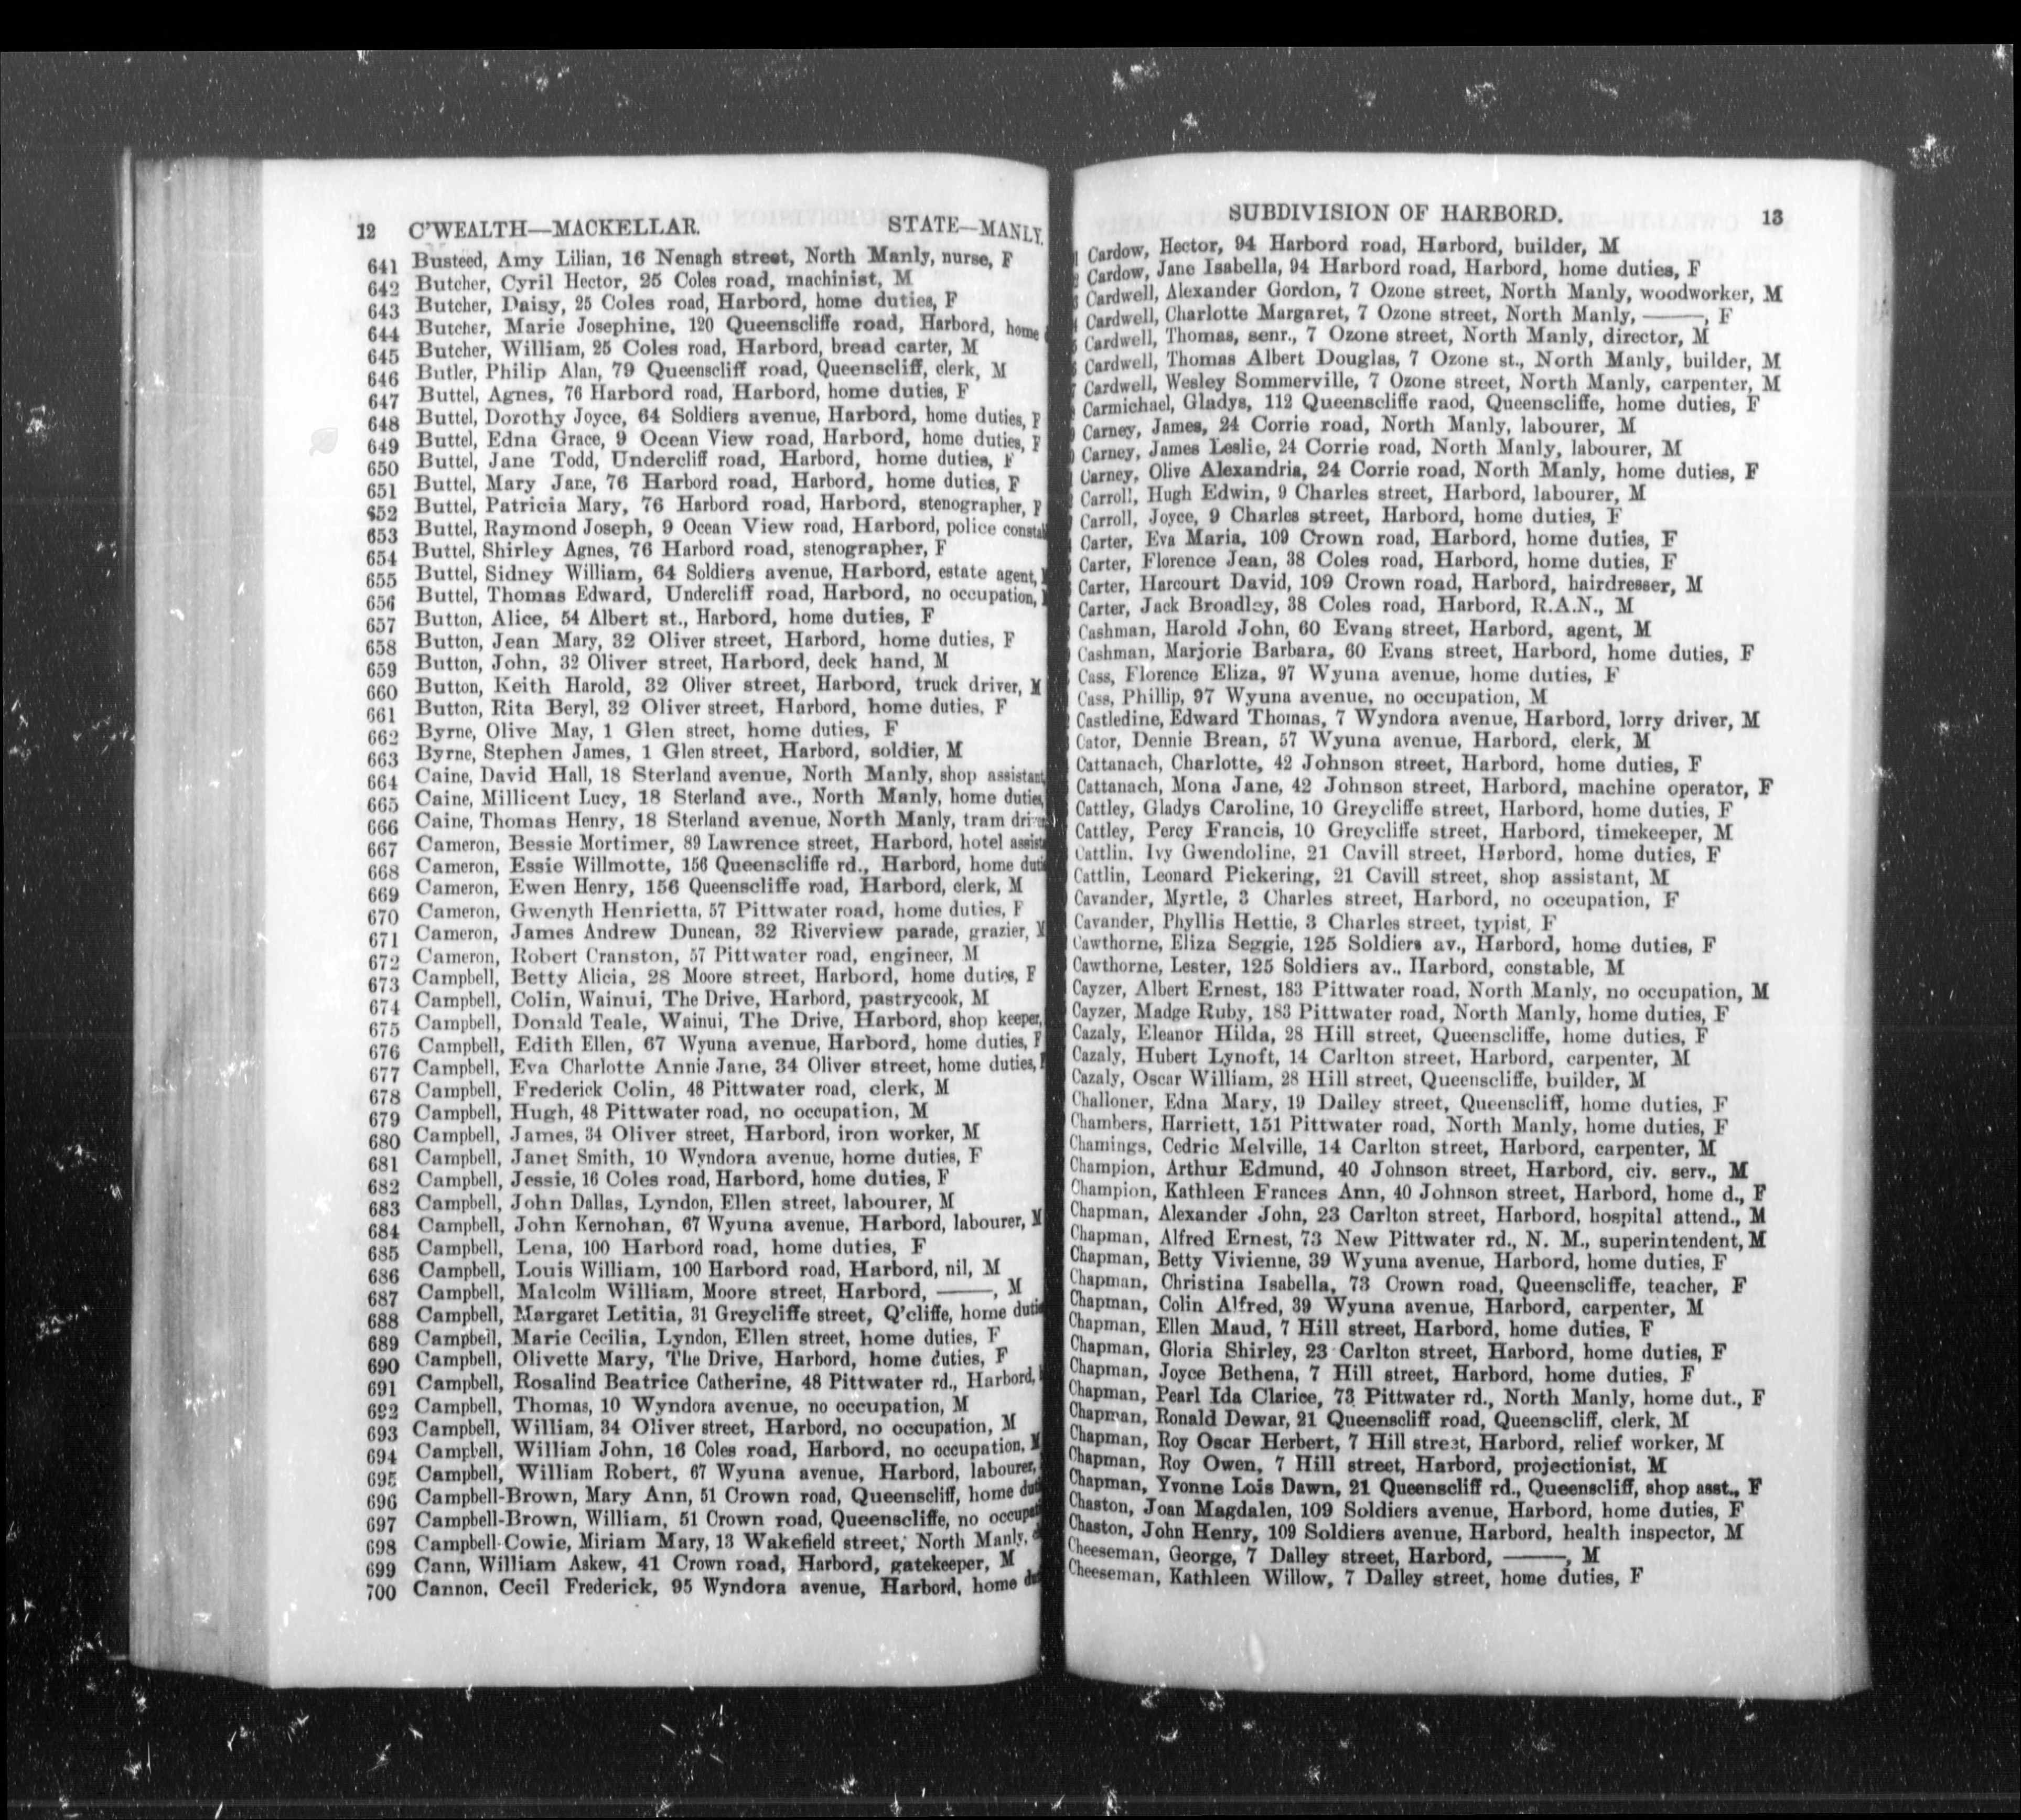 12 C'WEALTH—MACKELLAR. STATE—MANLY.
641 Busteed, Amy Lilian, 16 Nenagh street, North Manly, nurse, F
642 Butcher, Cyril Hector, 25 Coles road, machinist, M
643 Butcher, Daisy, 25 Coles road, Harbord, home duties, F
644 Butcher, Marie Josephine, 120 Queenscliffe road, Harbord, home
645 Butcher, William, 25 Coles road, Harbord, bread carter, M
646 Butler, Philip Alan, 79 Queenscliff road, Queenscliff, clerk, M
647 Buttel, Agnes, 76 Harbord road, Harbord, home duties, F
648 Buttel, Dorothy Joyce, 64 Soldiers avenue, Harbord, home duties, F
649 Buttel, Edna Grace, 9 Ocean View road, Harbord, home duties, F
650 Buttel, Jane Todd, Undercliff road, Harbord, home duties, F
651 Buttel, Mary Jane, 76 Harbord road, Harbord, home duties, F
652 Buttel, Patricia Mary, 76 Harbord road, Harbord, stenographer, F
653 Buttel, Raymond Joseph, 9 Ocean View road, Harbord, police consta
654 Buttel, Shirley Agnes, 76 Harbord road, stenographer, F
655 Buttel, Sidney William, 64 Soldiers avenue, Harbord, estate agent,
656 Buttel, Thomas Edward, Undercliff road, Harbord, no occupation,
657 Button, Alice, 54 Albert st., Harbord, home duties, F
658 Button, Jean Mary, 32 Oliver street, Harbord, home duties, F
659 Button, John, 32 Oliver street, Harbord, deck hand, M
660 Button, Keith Harold, 32 Oliver street, Harbord, truck driver, M
661 Button, Rita Beryl, 32 Oliver street, Harbord, home duties, F
662 Byrne, Olive May, 1 Glen street, home duties, F
663 Byrne, Stephen James, 1 Glen street, Harbord, soldier, M
664 Caine, David Hall, 18 Sterland avenue, North Manly, shop assistant,
665 Caine, Millicent Lucy, 18 Sterland ave., North Manly, home duties,
666 Caine, Thomas Henry, 18 Sterland avenue, North Manly, tram driv
667 Cameron, Bessie Mortimer, 89 Lawrence street, Harbord, hotel assist
668 Cameron, Essie Willmotte, 156 Queenscliffe rd., Harbord, home duti
669 Cameron, Ewen Henry, 156 Queenscliffe road, Harbord, clerk, M
670 Cameron, Gwenyth Henrietta, 57 Pittwater road, home duties, F
671 Cameron, James Andrew Duncan, 32 Riverview parade, grazier, M
672 Cameron, Robert Cranston, 57 Pittwater road, engineer, M
673 Campbell, Betty Alicia, 28 Moore street, Harbord, home duties, F
674 Campbell, Colin, Wainui, The Drive, Harbord, pastrycook, M
675 Campbell, Donald Teale, Wainui, The Drive, Harbord, shop keeper,
676 Campbell, Edith Ellen, 67 Wyuna avenue, Harbord, home duties, F
677 Campbell, Eva Charlotte Annie Jane, 34 Oliver street, home duties,
678 Campbell, Frederick Colin, 48 Pittwater road, clerk, M
679 Campbell, Hugh, 48 Pittwater road, no occupation, M
680 Campbell, James, 34 Oliver street, Harbord, iron worker, M
681 Campbell, Janet Smith, 10 Wyndora avenue, home duties, F
682 Campbell, Jessie, 16 Coles road, Harbord, home duties, F
683 Campbell, John Dallas, Lyndon, Ellen street, labourer, M
684 Campbell, John Kernohan, 67 Wyuna avenue, Harbord, labourer, M
685 Campbell, Lena, 100 Harbord road, home duties, F
686 Campbell, Louis William, 100 Harbord road, Harbord, nil, M
687 Campbell, Malcolm William, Moore street, Harbord, ———, M
688 Campbell, Margaret Letitia, 31 Greycliffe street, Q'cliffe, home dutie
689 Campbell, Marie Cecilia, Lyndon, Ellen street, home duties, F
690 Campbell, Olivette Mary, The Drive, Harbord, home duties, F
691 Campbell, Rosalind Beatrice Catherine, 48 Pittwater rd., Harbord,
692 Campbell, Thomas, 10 Wyndora avenue, no occupation, M
693 Campbell, William, 34 Oliver street, Harbord, no occupation, M
694 Campbell, William John, 16 Coles road, Harbord, no occupation, M
695 Campbell, William Robert, 67 Wyuna avenue, Harbord, labourer,
696 Campbell-Brown, Mary Ann, 51 Crown road, Queenscliff, home duti
697 Campbell-Brown, William, 51 Crown road, Queenscliffe, no occupati
698 Campbell-Cowie, Miriam Mary, 13 Wakefield street, North Manly,
699 Cann, William Askew, 41 Crown road, Harbord, gatekeeper, M
700 Cannon, Cecil Frederick, 95 Wyndora avenue, Harbord, home du
SUBDIVISION OF HARBORD. 13
1 Cardow, Hector, 94 Harbord road, Harbord, builder, M
2 Cardow, Jane Isabella, 94 Harbord road, Harbord, home duties, F
3 Cardwell, Alexander Gordon, 7 Ozone street, North Manly, woodworker, M
4 Cardwell, Charlotte Margaret, 7 Ozone street, North Manly, ———, F
5 Cardwell, Thomas, senr., 7 Ozone street, North Manly, director, M
6 Cardwell, Thomas Albert Douglas, 7 Ozone st., North Manly, builder, M
7 Cardwell, Wesley Sommerville, 7 Ozone street, North Manly, carpenter, M
Carmichael, Gladys, 112 Queenscliffe raod, Queenscliffe, home duties, F
Carney, James, 24 Corrie road, North Manly, labourer, M
Carney, James Leslie, 24 Corrie road, North Manly, labourer, M
Carney, Olive Alexandria, 24 Corrie road, North Manly, home duties, F
Carroll, Hugh Edwin, 9 Charles street, Harbord, labourer, M
Carroll, Joyce, 9 Charles street, Harbord, home duties, F
Carter, Eva Maria, 109 Crown road, Harbord, home duties, F
Carter, Florence Jean, 38 Coles road, Harbord, home duties, F
Carter, Harcourt David, 109 Crown road, Harbord, hairdresser, M
Carter, Jack Broadley, 38 Coles road, Harbord, R.A.N., M
Cashman, Harold John, 60 Evans street, Harbord, agent, M
Cashman, Marjorie Barbara, 60 Evans street, Harbord, home duties, F
Cass, Florence Eliza, 97 Wyuna avenue, home duties, F
Cass, Phillip, 97 Wyuna avenue, no occupation, M
Castledine, Edward Thomas, 7 Wyndora avenue, Harbord, lorry driver, M
Cator, Dennie Brean, 57 Wyuna avenue, Harbord, clerk, M
Cattanach, Charlotte, 42 Johnson street, Harbord, home duties, F
Cattanach, Mona Jane, 42 Johnson street, Harbord, machine operator, F
Cattley, Gladys Caroline, 10 Greycliffe street, Harbord, home duties, F
Cattley, Percy Francis, 10 Greycliffe street, Harbord, timekeeper, M
Cattlin, Ivy Gwendoline, 21 Cavill street, Harbord, home duties, F
Cattlin, Leonard Pickering, 21 Cavill street, shop assistant, M
Cavander, Myrtle, 3 Charles street, Harbord, no occupation, F
Cavander, Phyllis Hettie, 3 Charles street, typist, F
Cawthorne, Eliza Seggie, 125 Soldiers av., Harbord, home duties, F
Cawthorne, Lester, 125 Soldiers av., Harbord, constable, M
Cayzer, Albert Ernest, 183 Pittwater road, North Manly, no occupation, M
Cayzer, Madge Ruby, 183 Pittwater road, North Manly, home duties, F
Cazaly, Eleanor Hilda, 28 Hill street, Queenscliffe, home duties, F
Cazaly, Hubert Lynoft, 14 Carlton street, Harbord, carpenter, M
Cazaly, Oscar William, 28 Hill street, Queenscliffe, builder, M
Challoner, Edna Mary, 19 Dalley street, Queenscliff, home duties, F
Chambers, Harriett, 151 Pittwater road, North Manly, home duties, F
Chamings, Cedric Melville, 14 Carlton street, Harbord, carpenter, M
Champion, Arthur Edmund, 40 Johnson street, Harbord, civ. serv., M
Champion, Kathleen Frances Ann, 40 Johnson street, Harbord, home d., F
Chapman, Alexander John, 23 Carlton street, Harbord, hospital attend., M
Chapman, Alfred Ernest, 73 New Pittwater rd., N. M., superintendent, M
Chapman, Betty Vivienne, 39 Wyuna avenue, Harbord, home duties, F
Chapman, Christina Isabella, 73 Crown road, Queenscliffe, teacher, F
Chapman, Colin Alfred, 39 Wyuna avenue, Harbord, carpenter, M
Chapman, Ellen Maud, 7 Hill street, Harbord, home duties, F
Chapman, Gloria Shirley, 23 Carlton street, Harbord, home duties, F
Chapman, Joyce Bethena, 7 Hill street, Harbord, home duties, F
Chapman, Pearl Ida Clarice, 73 Pittwater rd., North Manly, home dut., F
Chapman, Ronald Dewar, 21 Queenscliff road, Queenscliff, clerk, M
Chapman, Roy Oscar Herbert, 7 Hill street, Harbord, relief worker, M
Chapman, Roy Owen, 7 Hill street, Harbord, projectionist, M
Chapman, Yvonne Lois Dawn, 21 Queenscliff rd., Queenscliff, shop asst., F
Chaston, Joan Magdalen, 109 Soldiers avenue, Harbord, home duties, F
Chaston, John Henry, 109 Soldiers avenue, Harbord, health inspector, M
Cheeseman, George, 7 Dalley street, Harbord, ———, M
Cheeseman, Kathleen Willow, 7 Dalley street, home duties, F